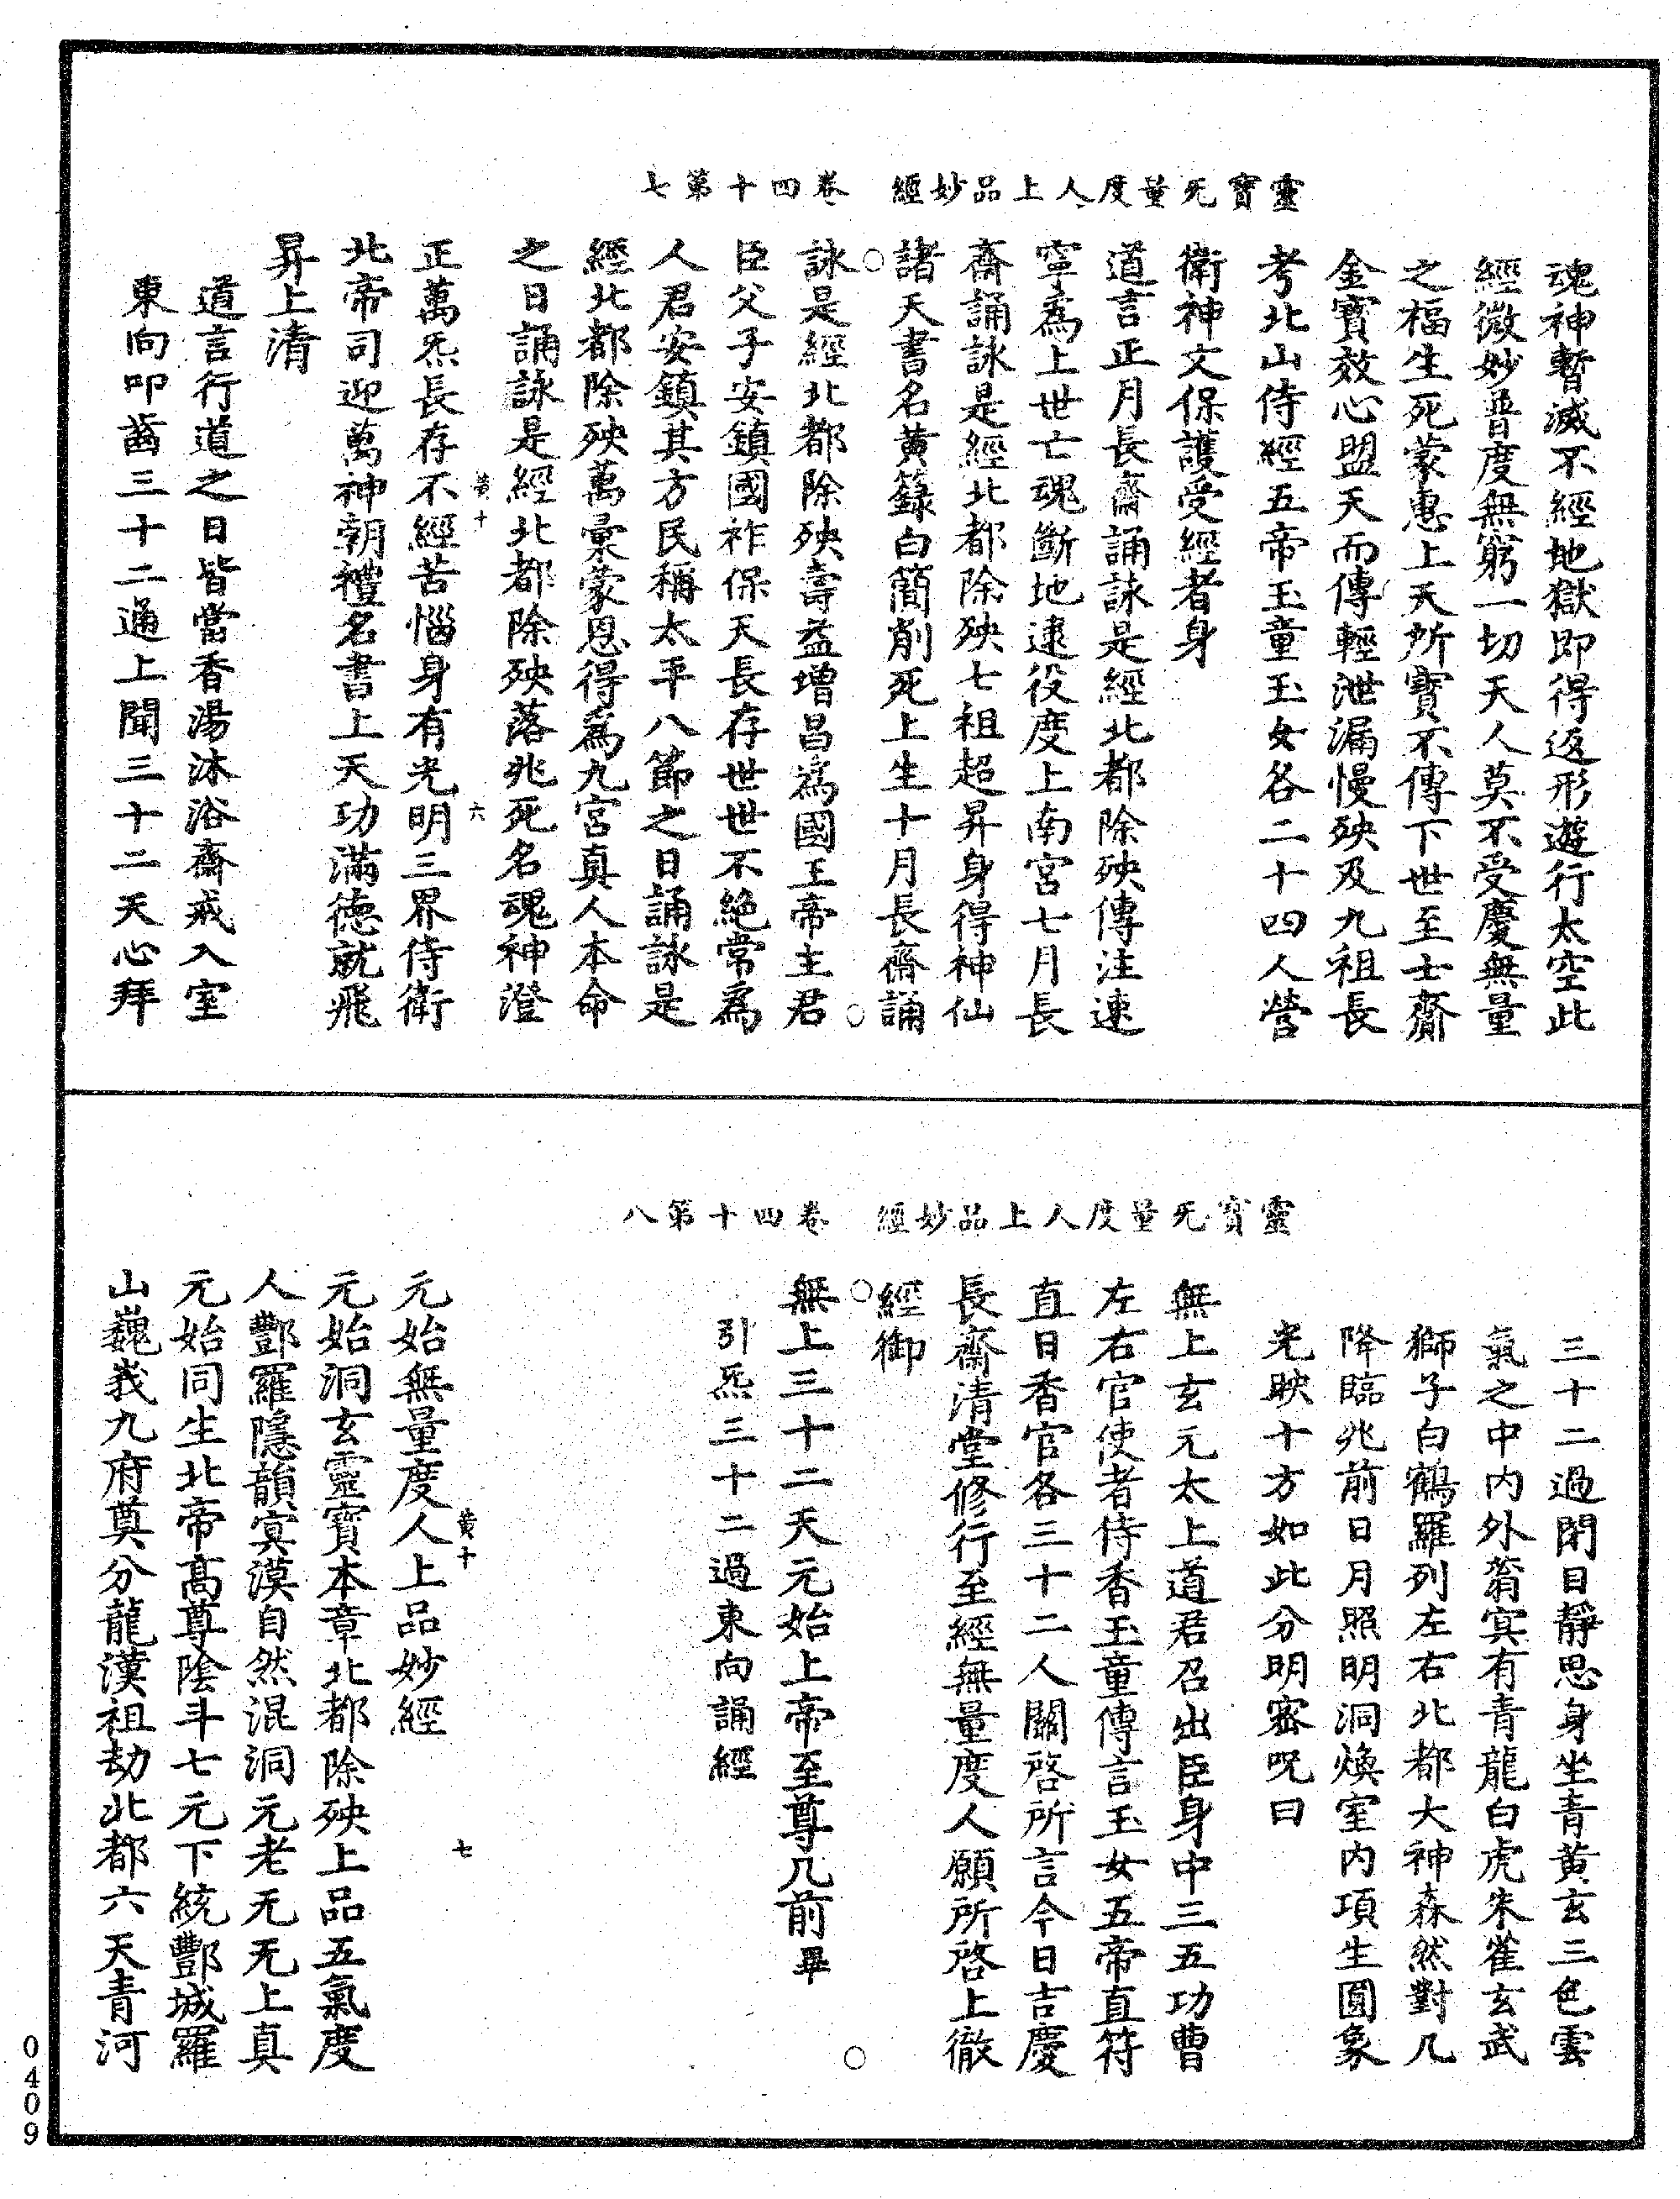 靈寶无量度人上品妙經　卷四十第七
魂神暫滅不經地獄即得返形遊行太空此
經微妙普度無窮一切天人莫不受慶無量
之福生死蒙惠上天所寶不傳下世至士齎
金寶效心盟天而傳輕泄漏慢殃及九祖長
考北山侍經五帝玉童玉女各二十四人營
衛神文保護受經者身
道言正月長齋誦詠是經北都除殃傳注速
寧爲上世亡魂斷地逮役度上南宮七月長
齋誦詠是經北都除殃七祖超昇身得神仙
諸天書名黃籙白簡削死上生十月長齋誦
詠是經北都除殃壽益增昌爲國王帝主君
臣父子安鎮國祚保天長存世世不絕常爲
人君安鎮其方民稱太平八節之日誦詠是
經北都除殃萬彙蒙恩得爲九宮真人本命
之日誦詠是經北都除殃落兆死名魂神澄
黃十　六
正萬炁長存不經苦惱身有光明三界侍衛
北帝司迎萬神朝禮名書上天功滿德就飛
昇上清
道言行道之日皆當香湯沐浴齋戒入室
東向叩齒三十二通上聞三十二天心拜
靈寶无量度人上品妙經　卷四十第八
三十二過閉目靜思身坐青黃玄三色雲
氣之中內外蓊冥有青龍白虎朱雀玄武
獅子白鶴羅列左右北都大神森然對几
降臨兆前日月照明洞煥室內項生圓象
光映十方如此分明密呪曰
無上玄元太上道君召出臣身中三五功曹
左右官使者侍香玉童傳言玉女五帝直符
直日香官各三十二人關啓所言今日吉慶
長齋清堂修行至經無量度人願所啓上徹
經御
無上三十二天元始上帝至尊几前畢
引炁三十二過東向誦經
黃十　七
元始無量度人上品妙經
元始洞玄靈寶本章北都除殃上品五氣度
人酆羅隱韻冥漠自然混洞元老无无上真
元始同生北帝高尊陰斗七元下統酆城羅
山巍峩九府奠分龍漢祖劫北都六天青河
0409